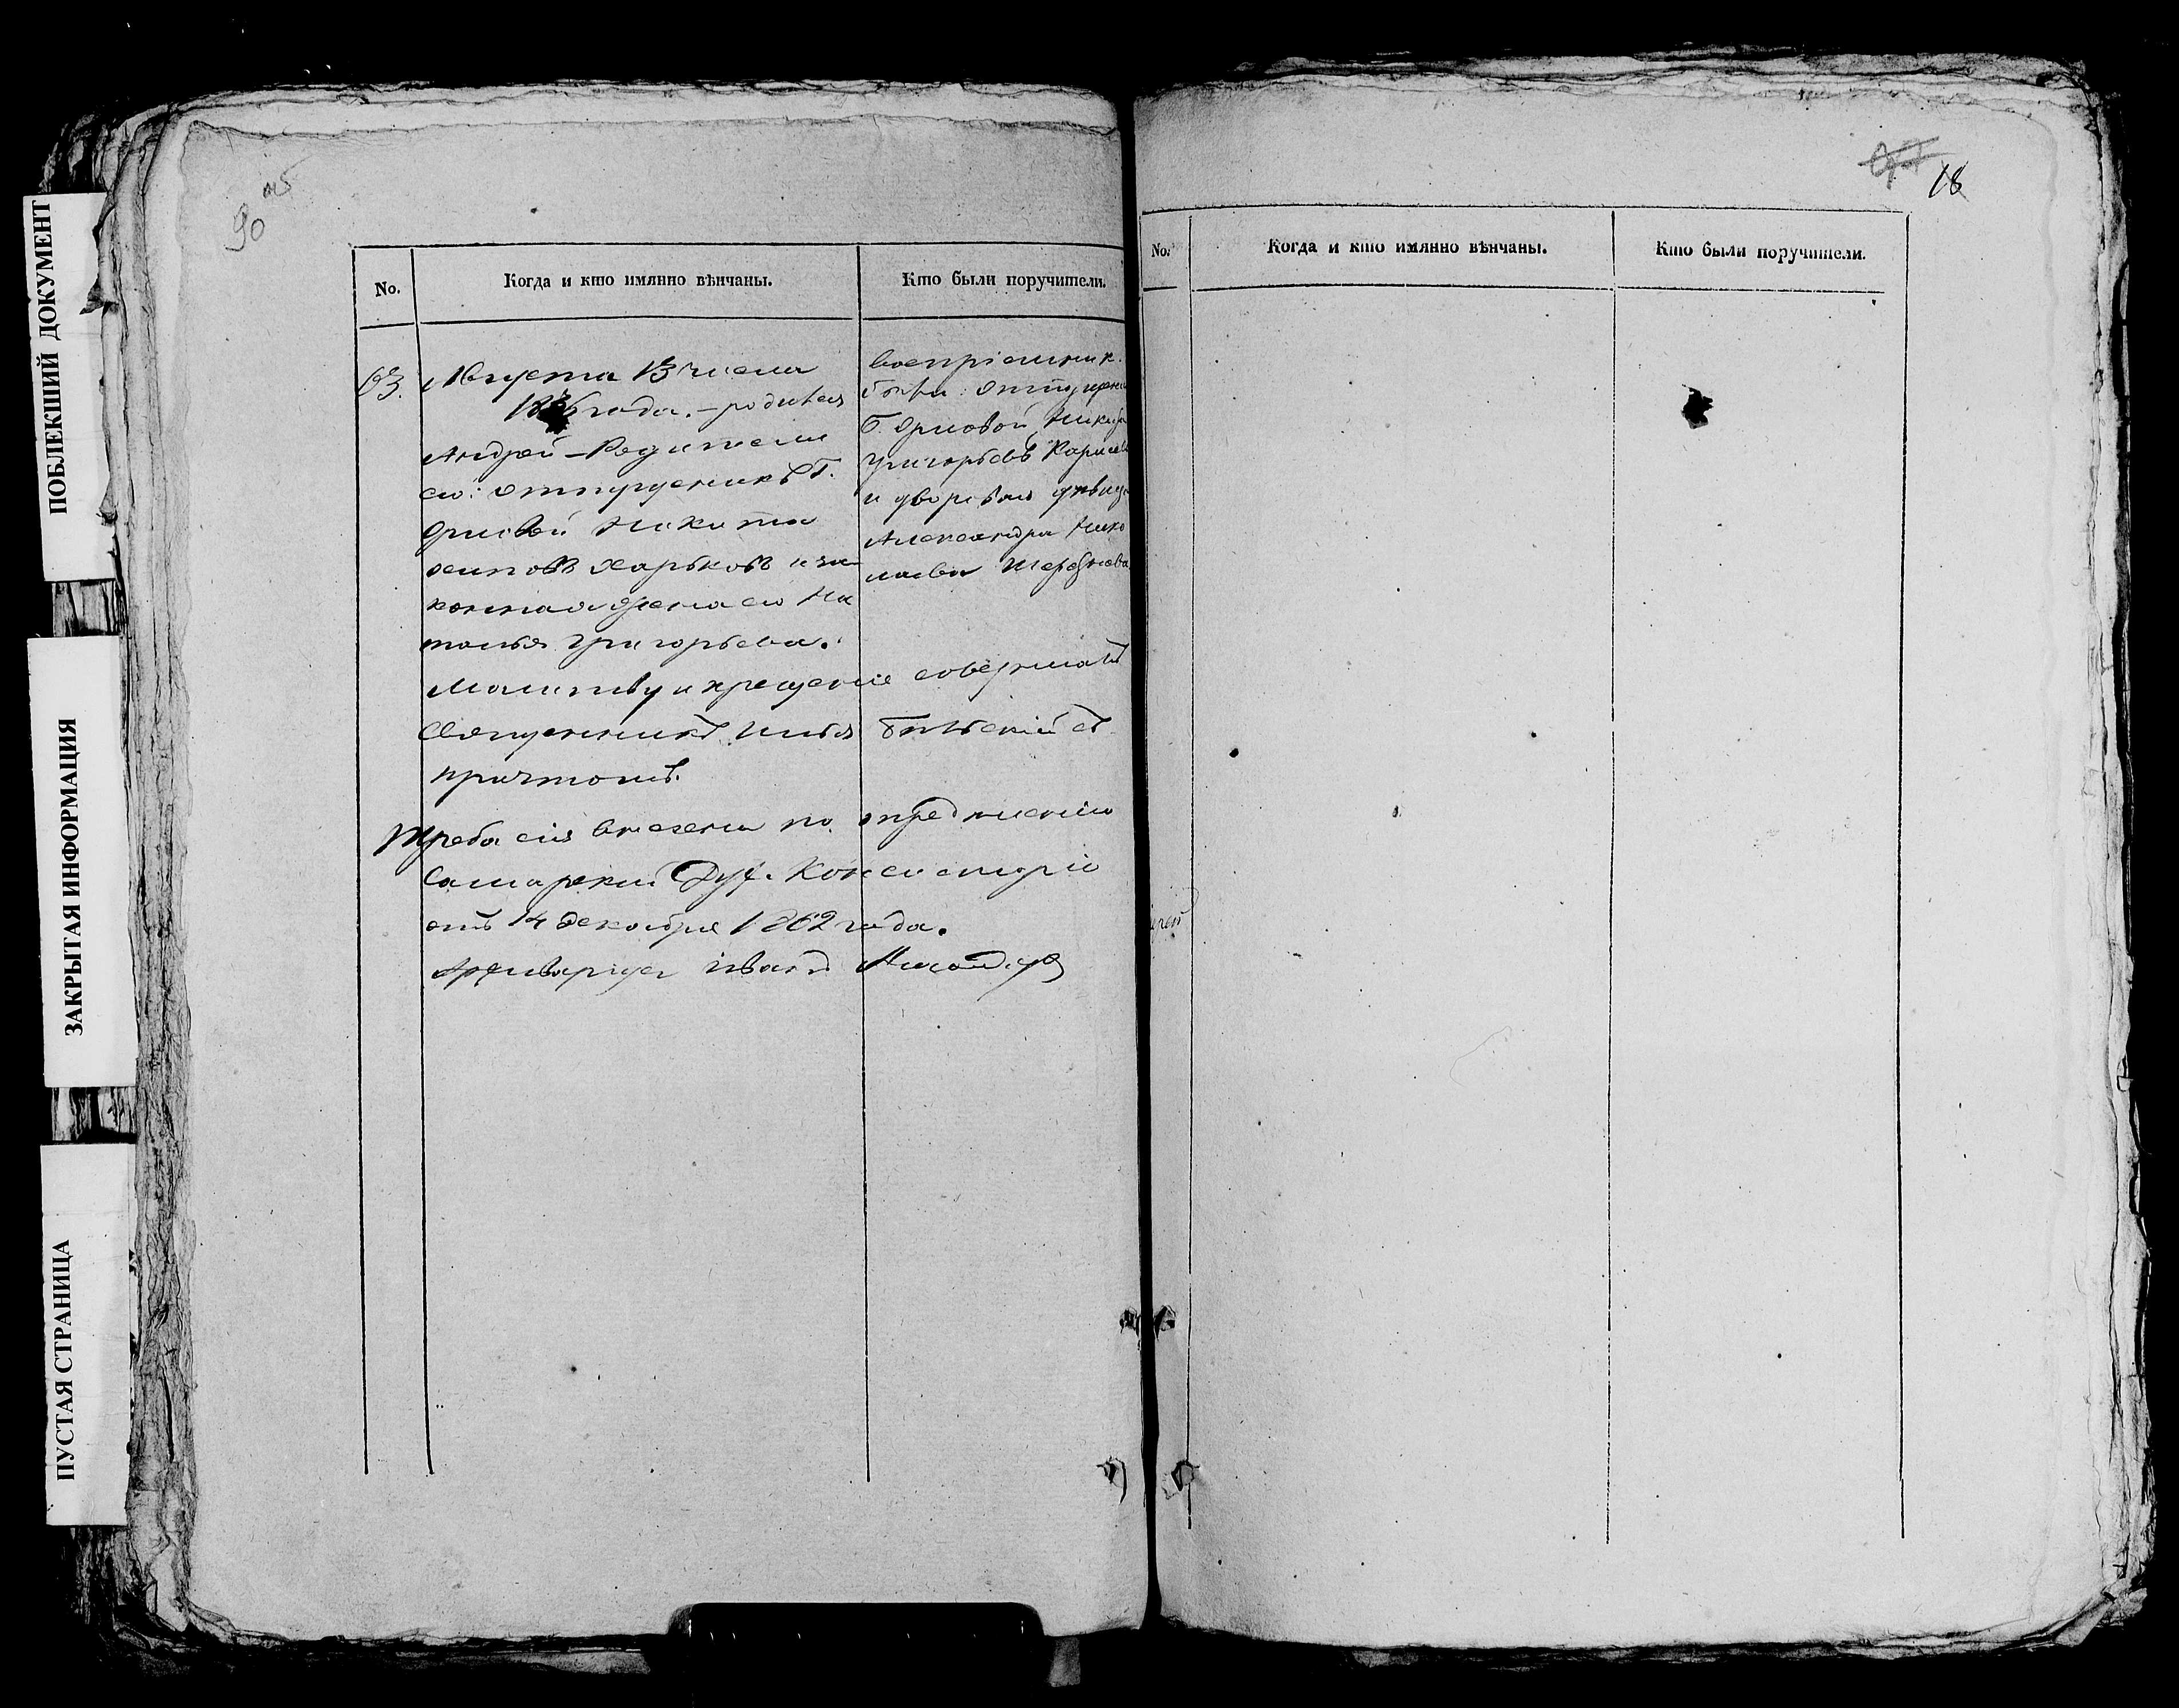 ПОБЛЕКШИЙ ДОКУМЕНТ
ЗАКРЫТАЯ ИНФОРМАЦИЯ
ПУСТАЯ СТРАНИЦА
90 об
No.
Когда и кто имянно вѣнчаны.
Кто были поручители.
Августа 13 числа
года. – родился
Андрей – Родители
его: отпущеникъ Г.
Орловой Никита
Осиповъ Харьковъ и за-
конная жена его На
талья Григорьева.
воспріемник.
были: отпущени
Г. Орловой
Григорьевъ
и дворовая дѣвица
Александра Нико
лаева
Молитву и крещеніе совершалъ
Священникъ Илья Бѣльскій съ
причтомъ.
Треба сія внесена по опредѣленію
Самарской Дух. Консисторіи
отъ 14 декабря 1862 года.
Архиваріусъ Иванъ
18
No.
Когда и кто имянно вѣнчаны.
Кто были поручители.